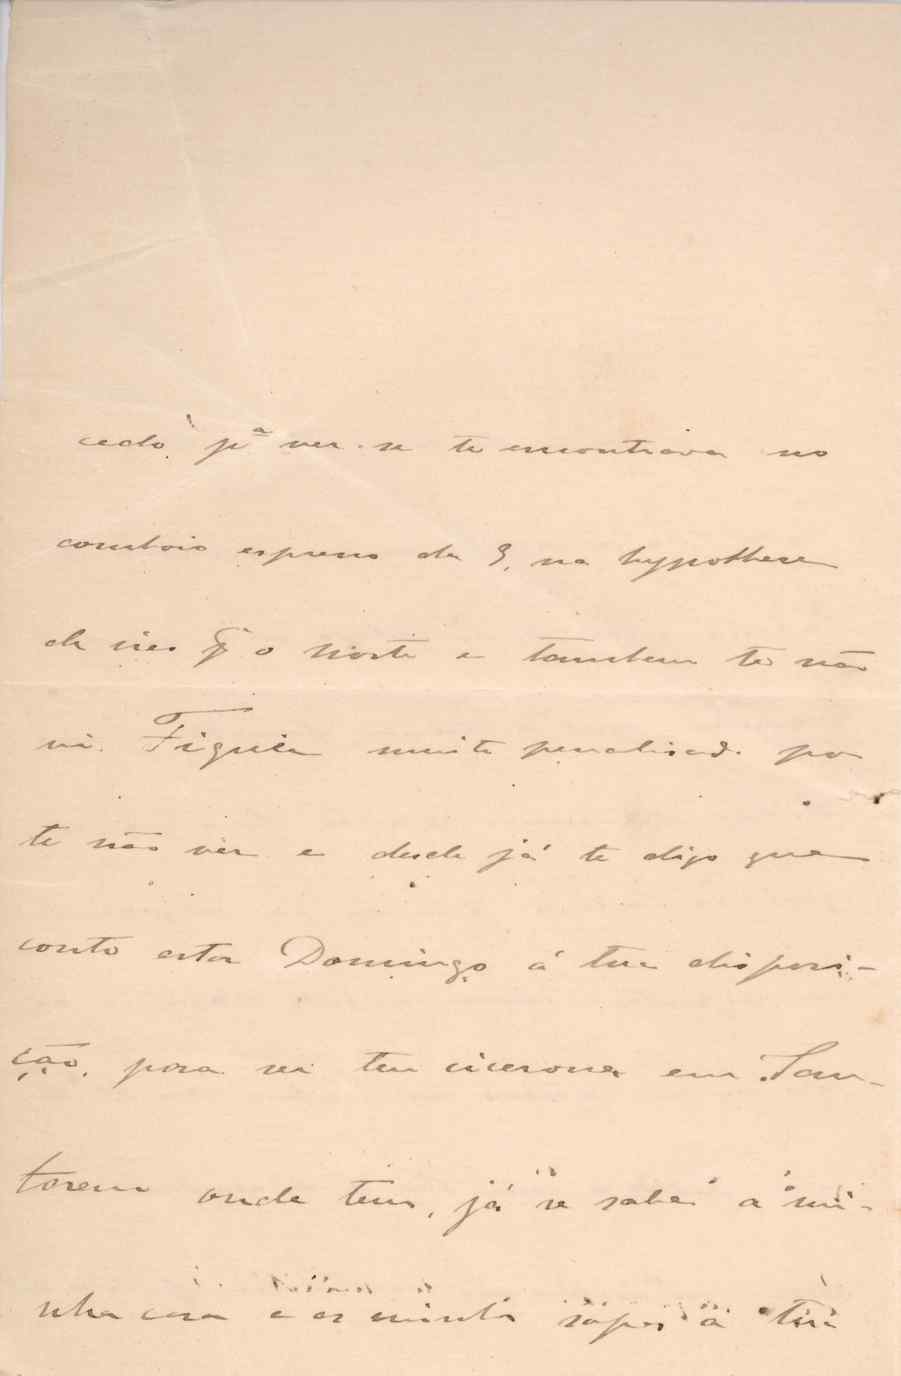 cedo pª ver se te encontrava no
comboio expresso da 9, na hypothese
de ires pª o Norte e tambem te não
vi. Fiquei muito penalisado por
te não ver e desde já te digo que
conto estar Domingo á tua disposi-
ção, para ser teu cicerone em San-
tarem onde tens, já se sabe a mi-
nha casa e as minhas sopas á tua